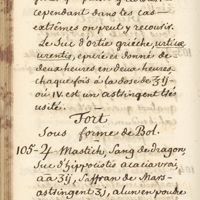 cependant dans les cas
extrêmes on peut y recourir.
Le Suc d'ortie grièche, urtica
urentis, épuré se donne de
deux heures en deux heures
chaque fois à la dose de ʒij-
ou IV. est un astringent très
usité.
Fort
Sous forme de Bol.
105-♃ Mastich, Sang de dragon,
Suc d'hippocistis acacia vrai,
aa ʒij, Saffran de Mars-
astringent ʒj, alun en poudre